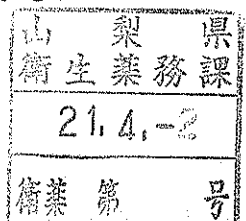 山梨県
衛生薬務課
21.4.-2
衛薬第 号